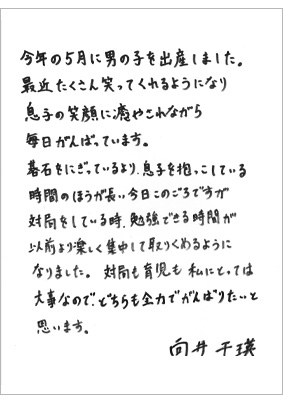 今年の5月に男の子を出産しました。
最近たくさん笑ってくれるようになり
息子の笑顔に癒やされながら
毎日がんばっています。
碁石をにぎっているより、息子を抱っこしている
時間のほうが長い今日このごろですが
対局をしている時、勉強できる時間が
以前より楽しく集中して取りくめるように
なりました。対局も育児も私にとっては
大事なので、どちらも全力でがんばりたいと
思います。
向井千瑛